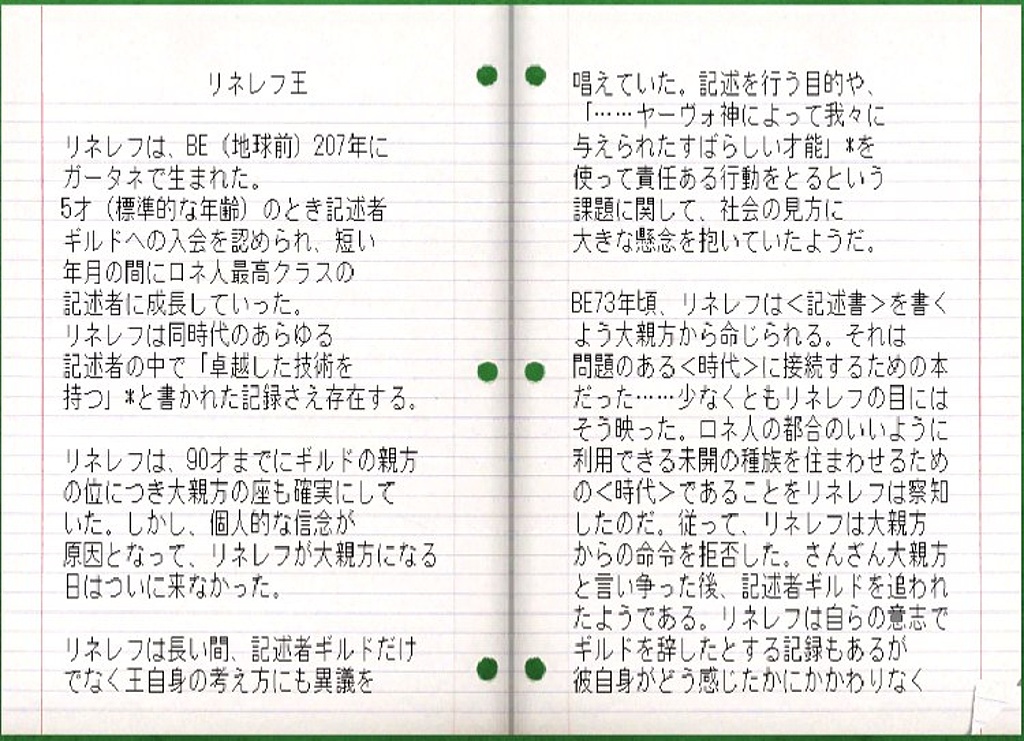 リネレフ王
リネレフは、BE（地球前）207年に
ガータネで生まれた。
5才（標準的な年齢）のとき記述者
ギルドへの入会を認められ、短い
年月の間にロネ人最高クラスの
記述者に成長していった。
リネレフは同時代のあらゆる
記述者の中で「卓越した技術を
持つ」*と書かれた記録さえ存在する。
リネレフは、90才までにギルドの親方
の位につき大親方の座も確実にして
いた。しかし、個人的な信念が
原因となって、リネレフが大親方になる
日はついに来なかった。
リネレフは長い間、記述者ギルドだけ
でなく王自身の考え方にも異議を
唱えていた。記述を行う目的や、
「……ヤーヴォ神によって我々に
与えられたすばらしい才能」*を
使って責任ある行動をとるという
課題に関して、社会の見方に
大きな懸念を抱いていたようだ。
BE73年頃、リネレフは＜記述書＞を書く
よう大親方から命じられる。それは
問題のある＜時代＞に接続するための本
だった……少なくともリネレフの目には
そう映った。ロネ人の都合のいいように
利用できる未開の種族を住まわせるため
の＜時代＞であることをリネレフは察知
したのだ。従って、リネレフは大親方
からの命令を拒否した。さんざん大親方
と言い争った後、記述者ギルドを追われ
たようである。リネレフは自らの意志で
ギルドを辞したとする記録もあるが
彼自身がどう感じたかにかかわりなく